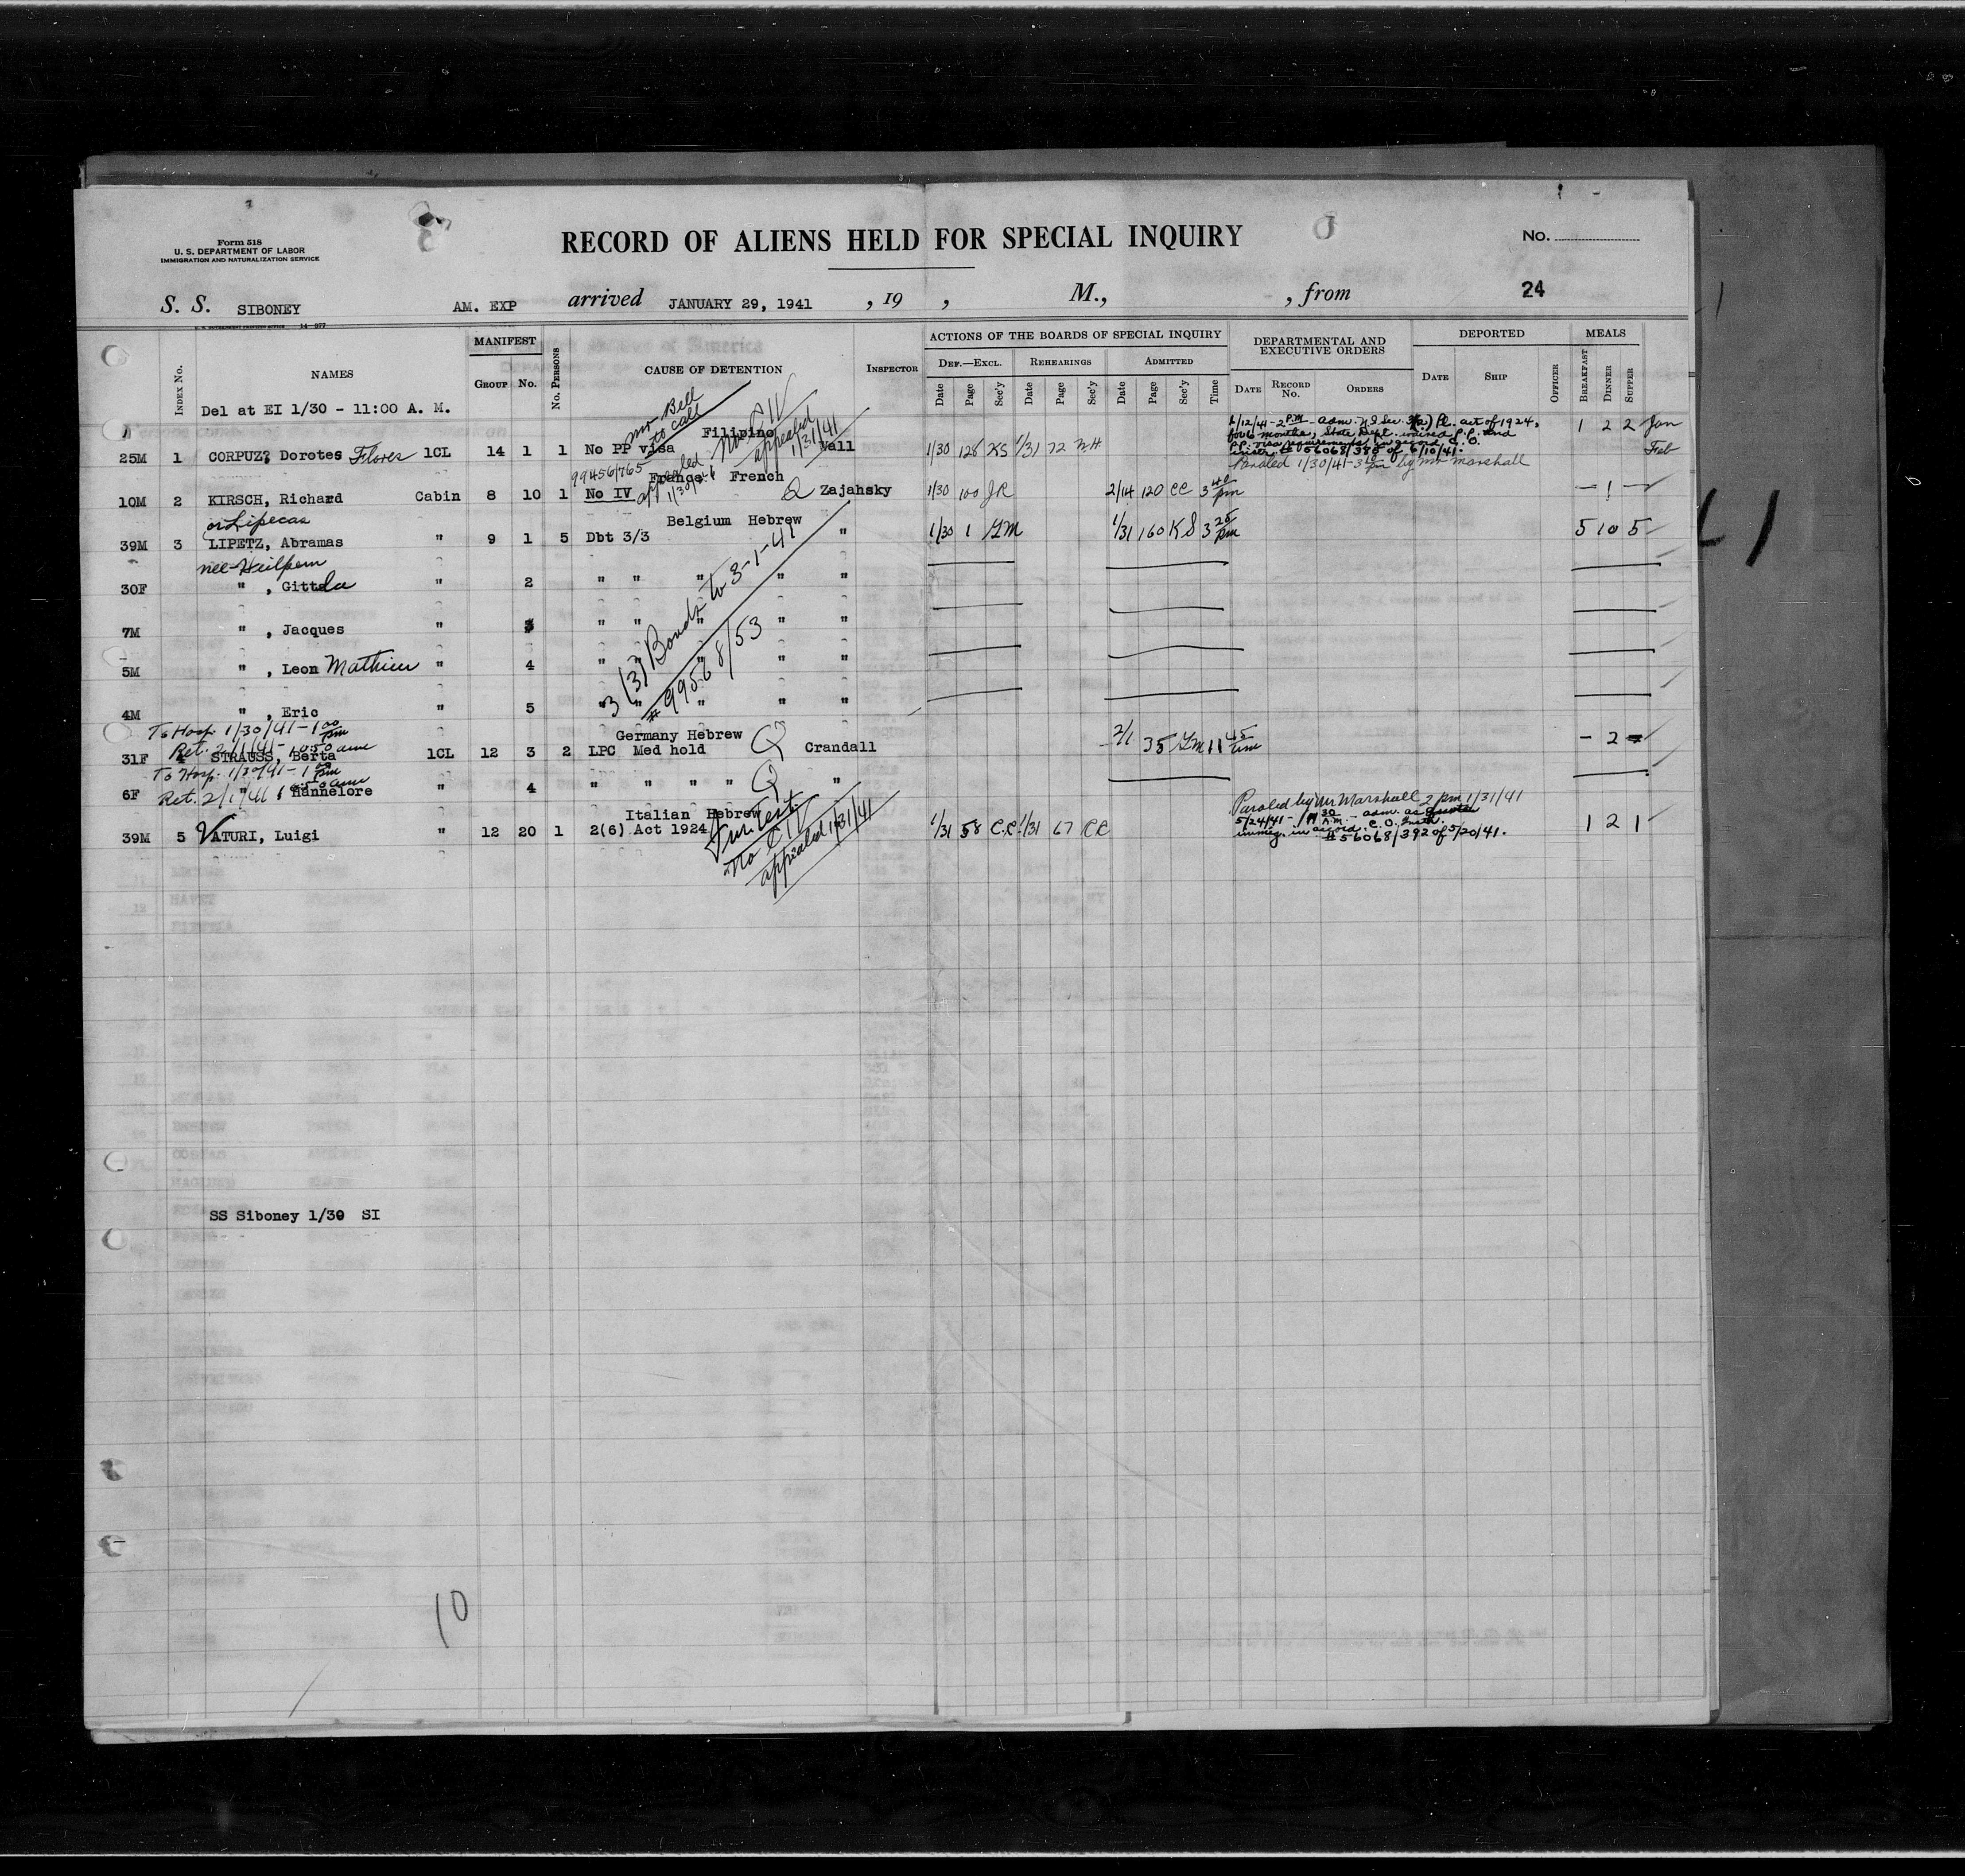 Form 518
U. S. DEPARTMENT OF LABOR
IMMIGRATION AND NATURALIZATION SERVICE
RECORD OF ALIENS HELD FOR SPECIAL INQUIRY
No.
S. S. SIBONEY AM. EXP arrived JANUARY 29, 1941 , 19 , M., , from 24
INDEX No. NAMES MANIFEST GROUP No. No. PERSONS CAUSE OF DETENTION INSPECTOR ACTIONS OF THE BOARDS OF SPECIAL INQUIRY DEPARTMENTAL AND EXECUTIVE ORDERS DEPORTED MEALS
DEF.—EXCL. REHEARINGS ADMITTED
Date Page Sec'y Date Page Sec'y Date Page Sec'y Time DATE RECORD No. ORDERS DATE SHIP OFFICER BREAKFAST DINNER SUPPER
Del at EI 1/30 - 11:00 A. M.
Mr Bell to call
No CIV appealed 1/31/41
Filipino
6/12/41 - 2 PM - adm. U.S. Sec. 3(2) Pl. act of 1924,
for 6 months, State Dept. waived P.P. and
P.P. visa requirements in accord C. O.
instr. # 56068/385 of 6/10/41.
25M 1 CORPUZ, Dorotes Flores 1CL 14 1 1 No PP visa Wall 1/30 128 KS 1/31 72 M.H 1 2 2 Jan
Feb
Paroled 1/30/41-3 10 pm by Mr Marshall
99456/765 appealed 1/30/41
France French
10M 2 KIRSCH, Richard Cabin 8 10 1 No IV Zajahsky 1/30 100 JR 2/14 120 CC 3 40 pm - 1 -
or Lipecas
Belgium Hebrew
39M 3 LIPETZ, Abramas " 9 1 5 Dbt 3/3 " 1/30 1 GM 1/31 160 KS 3 25 pm 5 10 5
nee-Heilpern
30F " , Gittda " 2 " " " " "
7M " , Jacques " 3 " " " " "
5M " , Leon Mathieu " 4 " " " " "
4M " , Eric " 5 " " " " "
3 (3) Bonds to 3-1-41
# 99568/53
To Hosp. 1/30/41-1 00 pm
Germany Hebrew
Ret. 2/1/41-10:50 am
31F 4 STRAUSS, Berta 1CL 12 3 2 LPC Med hold Crandall 2/1 35 GM 11 45 am - 2 -
To Hosp. 1/30/41-1 00 pm
Ret. 2/1/41 10:50 am
6F " , Hannelore " 4 " " " " "
Italian Hebrew
Paroled by Mr Marshall 2 pm 1/31/41
5/24/41 - 11 30 A.M. - adm. as quota
immig. in accord. C. O. Instr.
# 56068/392 of 5/20/41.
39M 5 VATURI, Luigi " 12 20 1 2(6) Act 1924 1/31 58 C.C. 1/31 67 CC 1 2 1
Fur. test.
No CIV
appealed 1/31/41
SS Siboney 1/30 SI
10